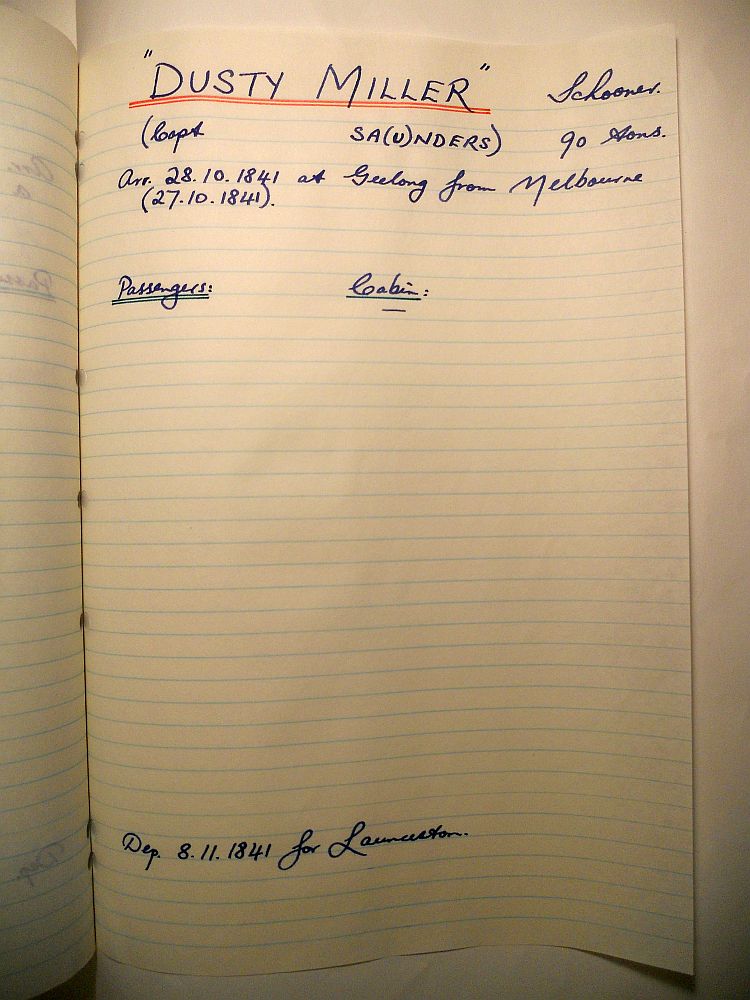 "DUSTY MILLER" Schooner.
(Capt SA(U)NDERS) 90 tons.
Arr. 28.10.1841 at Geelong from Melbourne
(27.10.1841).
Passengers: Cabin:
—
Dep. 8.11.1841 for Launceston.